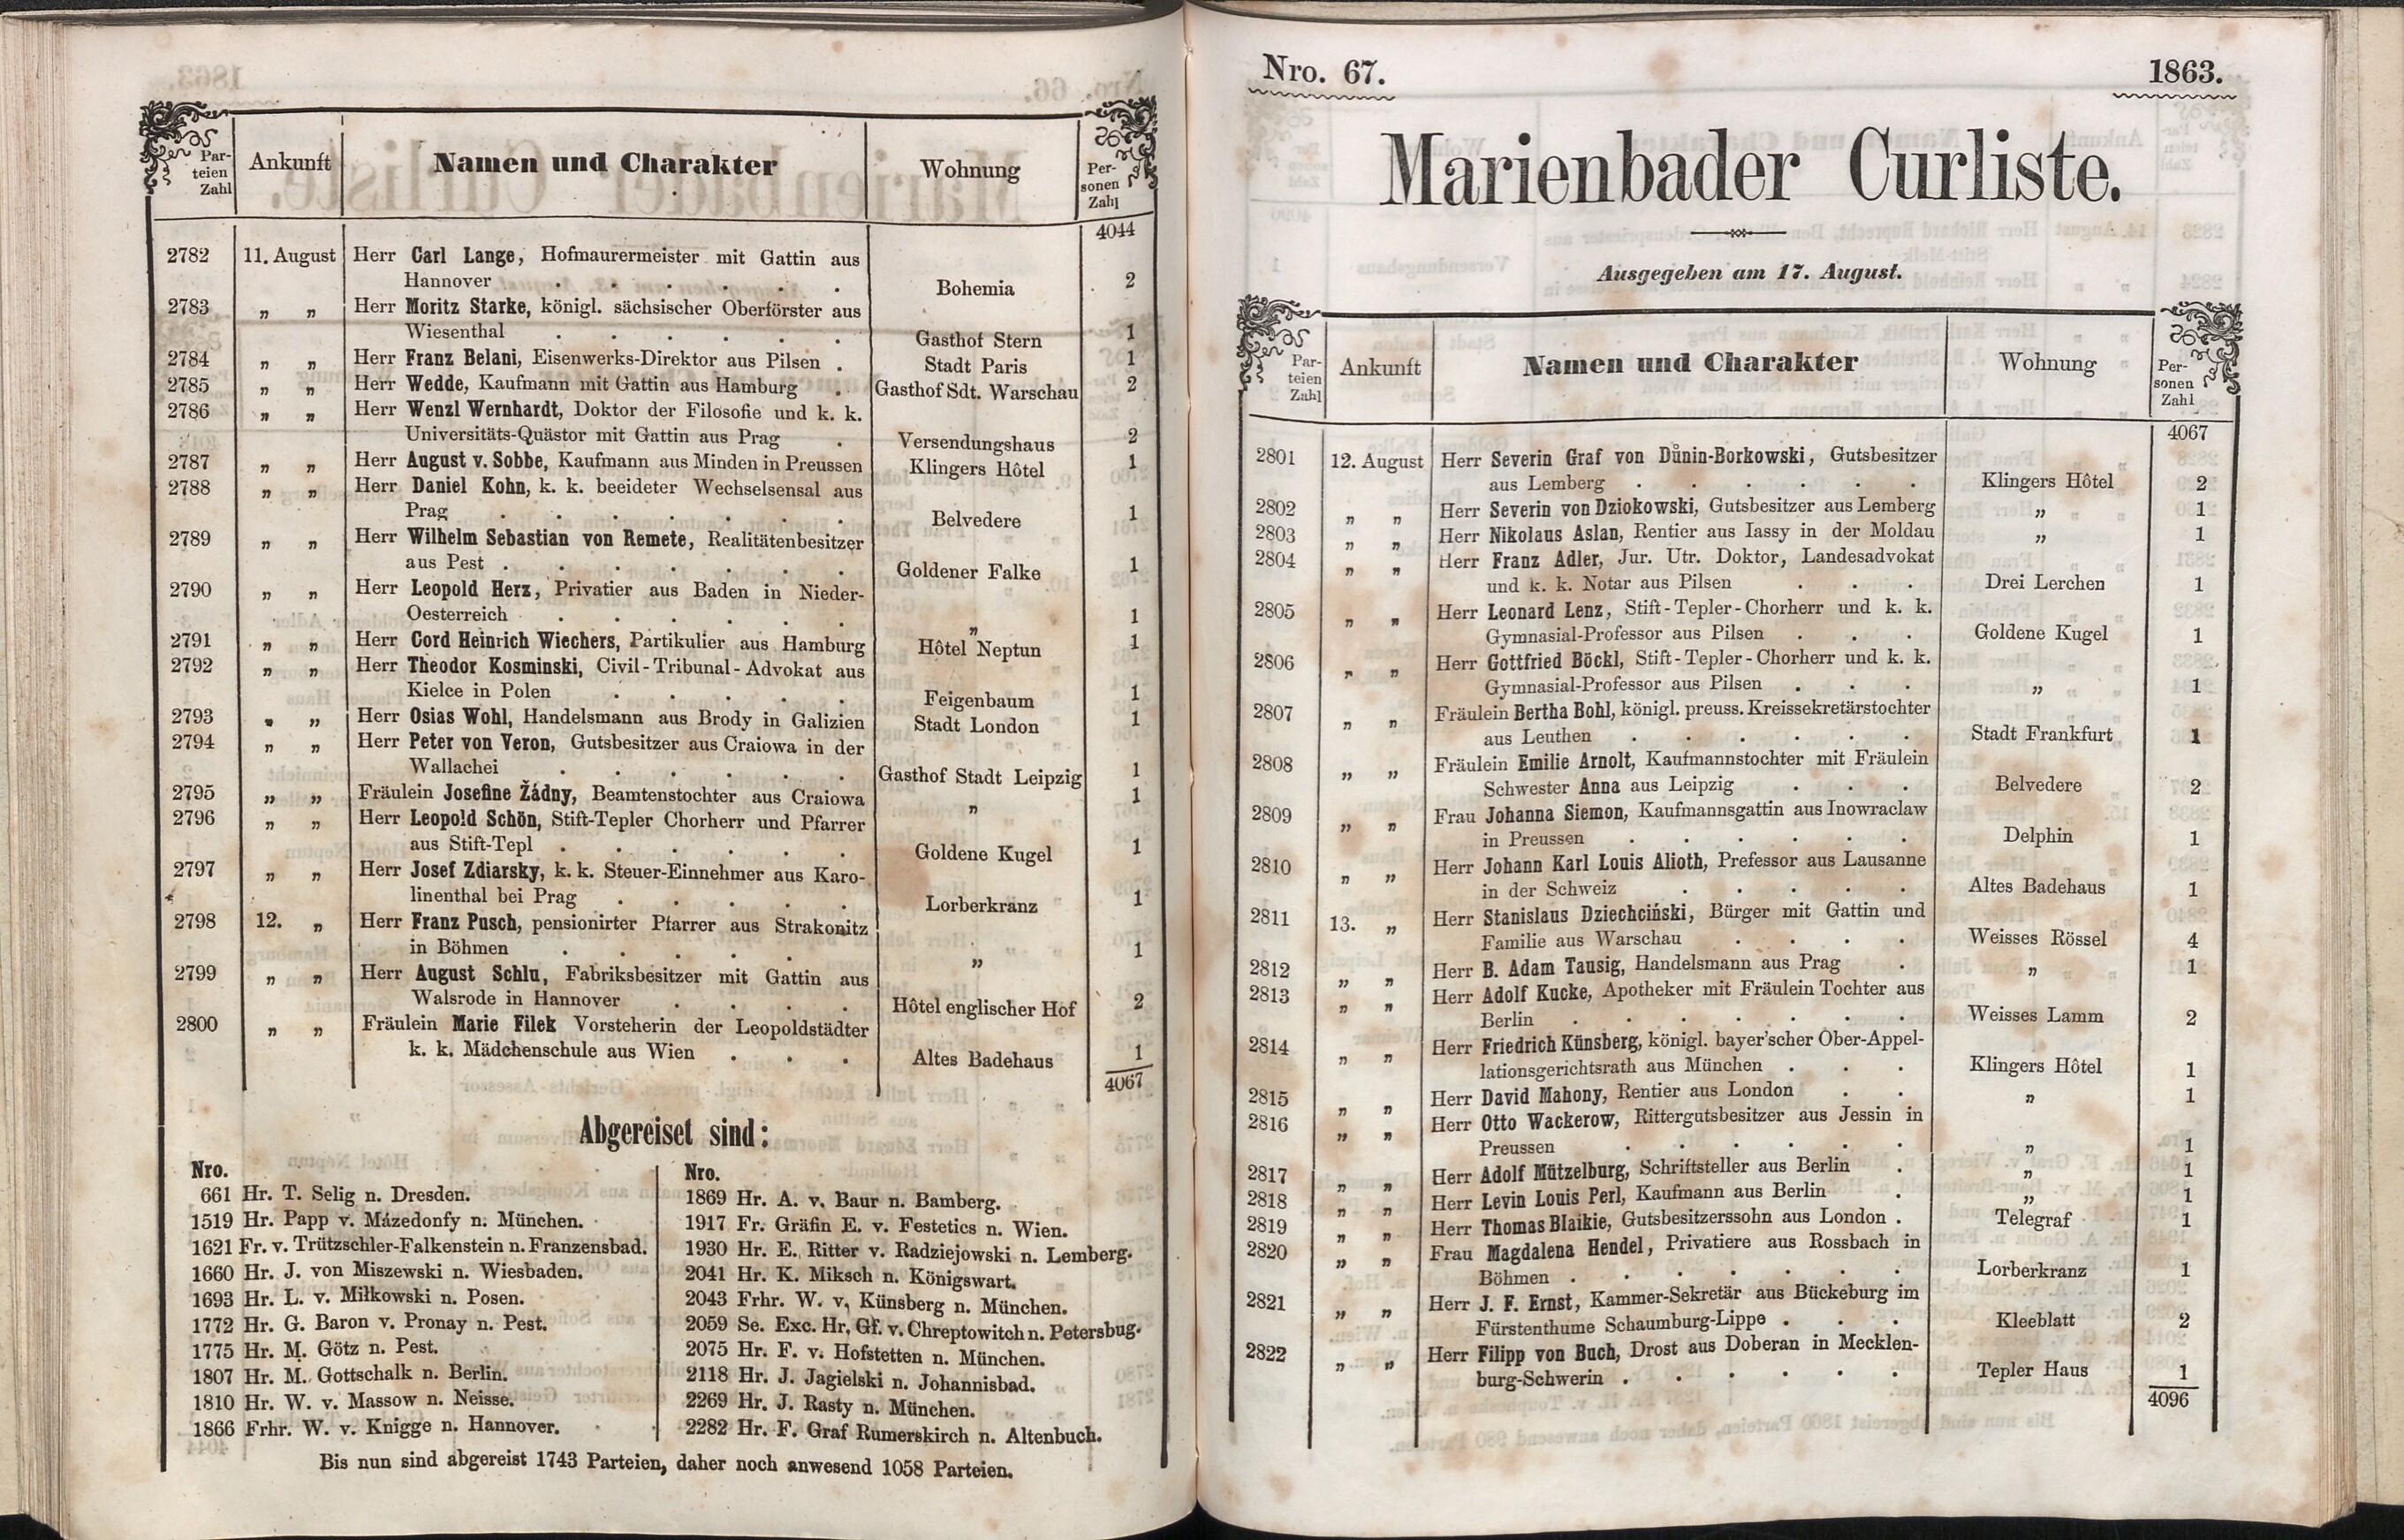 Par-
teien
Zahl
Ankunft
Namen und Charakter
Wohnung
Per-
sonen
Zahl
4044
2782 11. August Herr Carl Lange, Hofmaurermeister mit Gattin aus
Hannover . . . . . . Bohemia 2
2783 „ „ Herr Moritz Starke, königl. sächsischer Oberförster aus
Wiesenthal . . . . . . Gasthof Stern 1
2784 „ „ Herr Franz Belani, Eisenwerks-Direktor aus Pilsen . Stadt Paris 1
2785 „ „ Herr Wedde, Kaufmann mit Gattin aus Hamburg . Gasthof Sdt. Warschau 2
2786 „ „ Herr Wenzl Wernhardt, Doktor der Filosofie und k. k.
Universitäts-Quästor mit Gattin aus Prag . Versendungshaus 2
2787 „ „ Herr August v. Sobbe, Kaufmann aus Minden in Preussen Klingers Hôtel 1
2788 „ „ Herr Daniel Kohn, k. k. beeideter Wechselsensal aus
Prag . . . . . . . Belvedere 1
2789 „ „ Herr Wilhelm Sebastian von Remete, Realitätenbesitzer
aus Pest . . . . . . . Goldener Falke 1
2790 „ „ Herr Leopold Herz, Privatier aus Baden in Nieder-
Oesterreich . . . . . . „ 1
2791 „ „ Herr Cord Heinrich Wiechers, Partikulier aus Hamburg Hôtel Neptun 1
2792 „ „ Herr Theodor Kosminski, Civil-Tribunal-Advokat aus
Kielce in Polen . . . . . Feigenbaum 1
2793 „ „ Herr Osias Wohl, Handelsmann aus Brody in Galizien Stadt London 1
2794 „ „ Herr Peter von Veron, Gutsbesitzer aus Craiowa in der
Wallachei . . . . . . Gasthof Stadt Leipzig 1
2795 „ „ Fräulein Josefine Žádny, Beamtenstochter aus Craiowa „ 1
2796 „ „ Herr Leopold Schön, Stift-Tepler Chorherr und Pfarrer
aus Stift-Tepl . . . . . . Goldene Kugel 1
2797 „ „ Herr Josef Zdiarsky, k. k. Steuer-Einnehmer aus Karo-
linenthal bei Prag . . . . . Lorberkranz 1
2798 12. „ Herr Franz Pusch, pensionirter Pfarrer aus Strakonitz
in Böhmen . . . . . . „ 1
2799 „ „ Herr August Schlu, Fabriksbesitzer mit Gattin aus
Walsrode in Hannover . . . . Hôtel englischer Hof 2
2800 „ „ Fräulein Marie Filek Vorsteherin der Leopoldstädter
k. k. Mädchenschule aus Wien . . . Altes Badehaus 1
4067
Abgereiset sind:
Nro.
661 Hr. T. Selig n. Dresden.
1519 Hr. Papp v. Mázedonfy n. München.
1621 Fr. v. Trützschler-Falkenstein n. Franzensbad.
1660 Hr. J. von Miszewski n. Wiesbaden.
1693 Hr. L. v. Miłkowski n. Posen.
1772 Hr. G. Baron v. Pronay n. Pest.
1775 Hr. M. Götz n. Pest.
1807 Hr. M. Gottschalk n. Berlin.
1810 Hr. W. v. Massow n. Neisse.
1866 Frhr. W. v. Knigge n. Hannover.
Nro.
1869 Hr. A. v. Baur n. Bamberg.
1917 Fr. Gräfin E. v. Festetics n. Wien.
1930 Hr. E. Ritter v. Radziejowski n. Lemberg.
2041 Hr. K. Miksch n. Königswart.
2043 Frhr. W. v. Künsberg n. München.
2059 Se. Exc. Hr. Gf. v. Chreptowitch n. Petersbug.
2075 Hr. F. v. Hofstetten n. München.
2118 Hr. J. Jagielski n. Johannisbad.
2269 Hr. J. Rasty n. München.
2282 Hr. F. Graf Rumerskirch n. Altenbuch.
Bis nun sind abgereist 1743 Parteien, daher noch anwesend 1058 Parteien.
Nro. 67. 1863.
Marienbader Curliste.
Ausgegeben am 17. August.
Par-
teien
Zahl
Ankunft
Namen und Charakter
Wohnung
Per-
sonen
Zahl
4067
2801 12. August Herr Severin Graf von Důnin-Borkowski, Gutsbesitzer
aus Lemberg . . . . . . Klingers Hôtel 2
2802 „ „ Herr Severin von Dziokowski, Gutsbesitzer aus Lemberg „ 1
2803 „ „ Herr Nikolaus Aslan, Rentier aus Iassy in der Moldau „ 1
2804 „ „ Herr Franz Adler, Jur. Utr. Doktor, Landesadvokat
und k. k. Notar aus Pilsen . . . Drei Lerchen 1
2805 „ „ Herr Leonard Lenz, Stift-Tepler-Chorherr und k. k.
Gymnasial-Professor aus Pilsen . . . Goldene Kugel 1
2806 „ „ Herr Gottfried Böckl, Stift-Tepler-Chorherr und k. k.
Gymnasial-Professor aus Pilsen . . . „ 1
2807 „ „ Fräulein Bertha Bohl, königl. preuss. Kreissekretärstochter
aus Leuthen . . . . . . Stadt Frankfurt 1
2808 „ „ Fräulein Emilie Arnolt, Kaufmannstochter mit Fräulein
Schwester Anna aus Leipzig . . . Belvedere 2
2809 „ „ Frau Johanna Siemon, Kaufmannsgattin aus Inowraclaw
in Preussen . . . . . . Delphin 1
2810 „ „ Herr Johann Karl Louis Alioth, Prefessor aus Lausanne
in der Schweiz . . . . . Altes Badehaus 1
2811 13. „ Herr Stanislaus Dziechciński, Bürger mit Gattin und
Familie aus Warschau . . . . Weisses Rössel 4
2812 „ „ Herr B. Adam Tausig, Handelsmann aus Prag . „ 1
2813 „ „ Herr Adolf Kucke, Apotheker mit Fräulein Tochter aus
Berlin . . . . . . . Weisses Lamm 2
2814 „ „ Herr Friedrich Künsberg, königl. bayer'scher Ober-Appel-
lationsgerichtsrath aus München . . . Klingers Hôtel 1
2815 „ „ Herr David Mahony, Rentier aus London . . „ 1
2816 „ „ Herr Otto Wackerow, Rittergutsbesitzer aus Jessin in
Preussen . . . . . . „ 1
2817 „ „ Herr Adolf Mützelburg, Schriftsteller aus Berlin . „ 1
2818 „ „ Herr Levin Louis Perl, Kaufmann aus Berlin . „ 1
2819 „ „ Herr Thomas Blaikie, Gutsbesitzerssohn aus London . Telegraf 1
2820 „ „ Frau Magdalena Hendel, Privatiere aus Rossbach in
Böhmen . . . . . . . Lorberkranz 1
2821 „ „ Herr J. F. Ernst, Kammer-Sekretär aus Bückeburg im
Fürstenthume Schaumburg-Lippe . . . Kleeblatt 2
2822 „ „ Herr Filipp von Buch, Drost aus Doberan in Mecklen-
burg-Schwerin . . . . . . Tepler Haus 1
4096